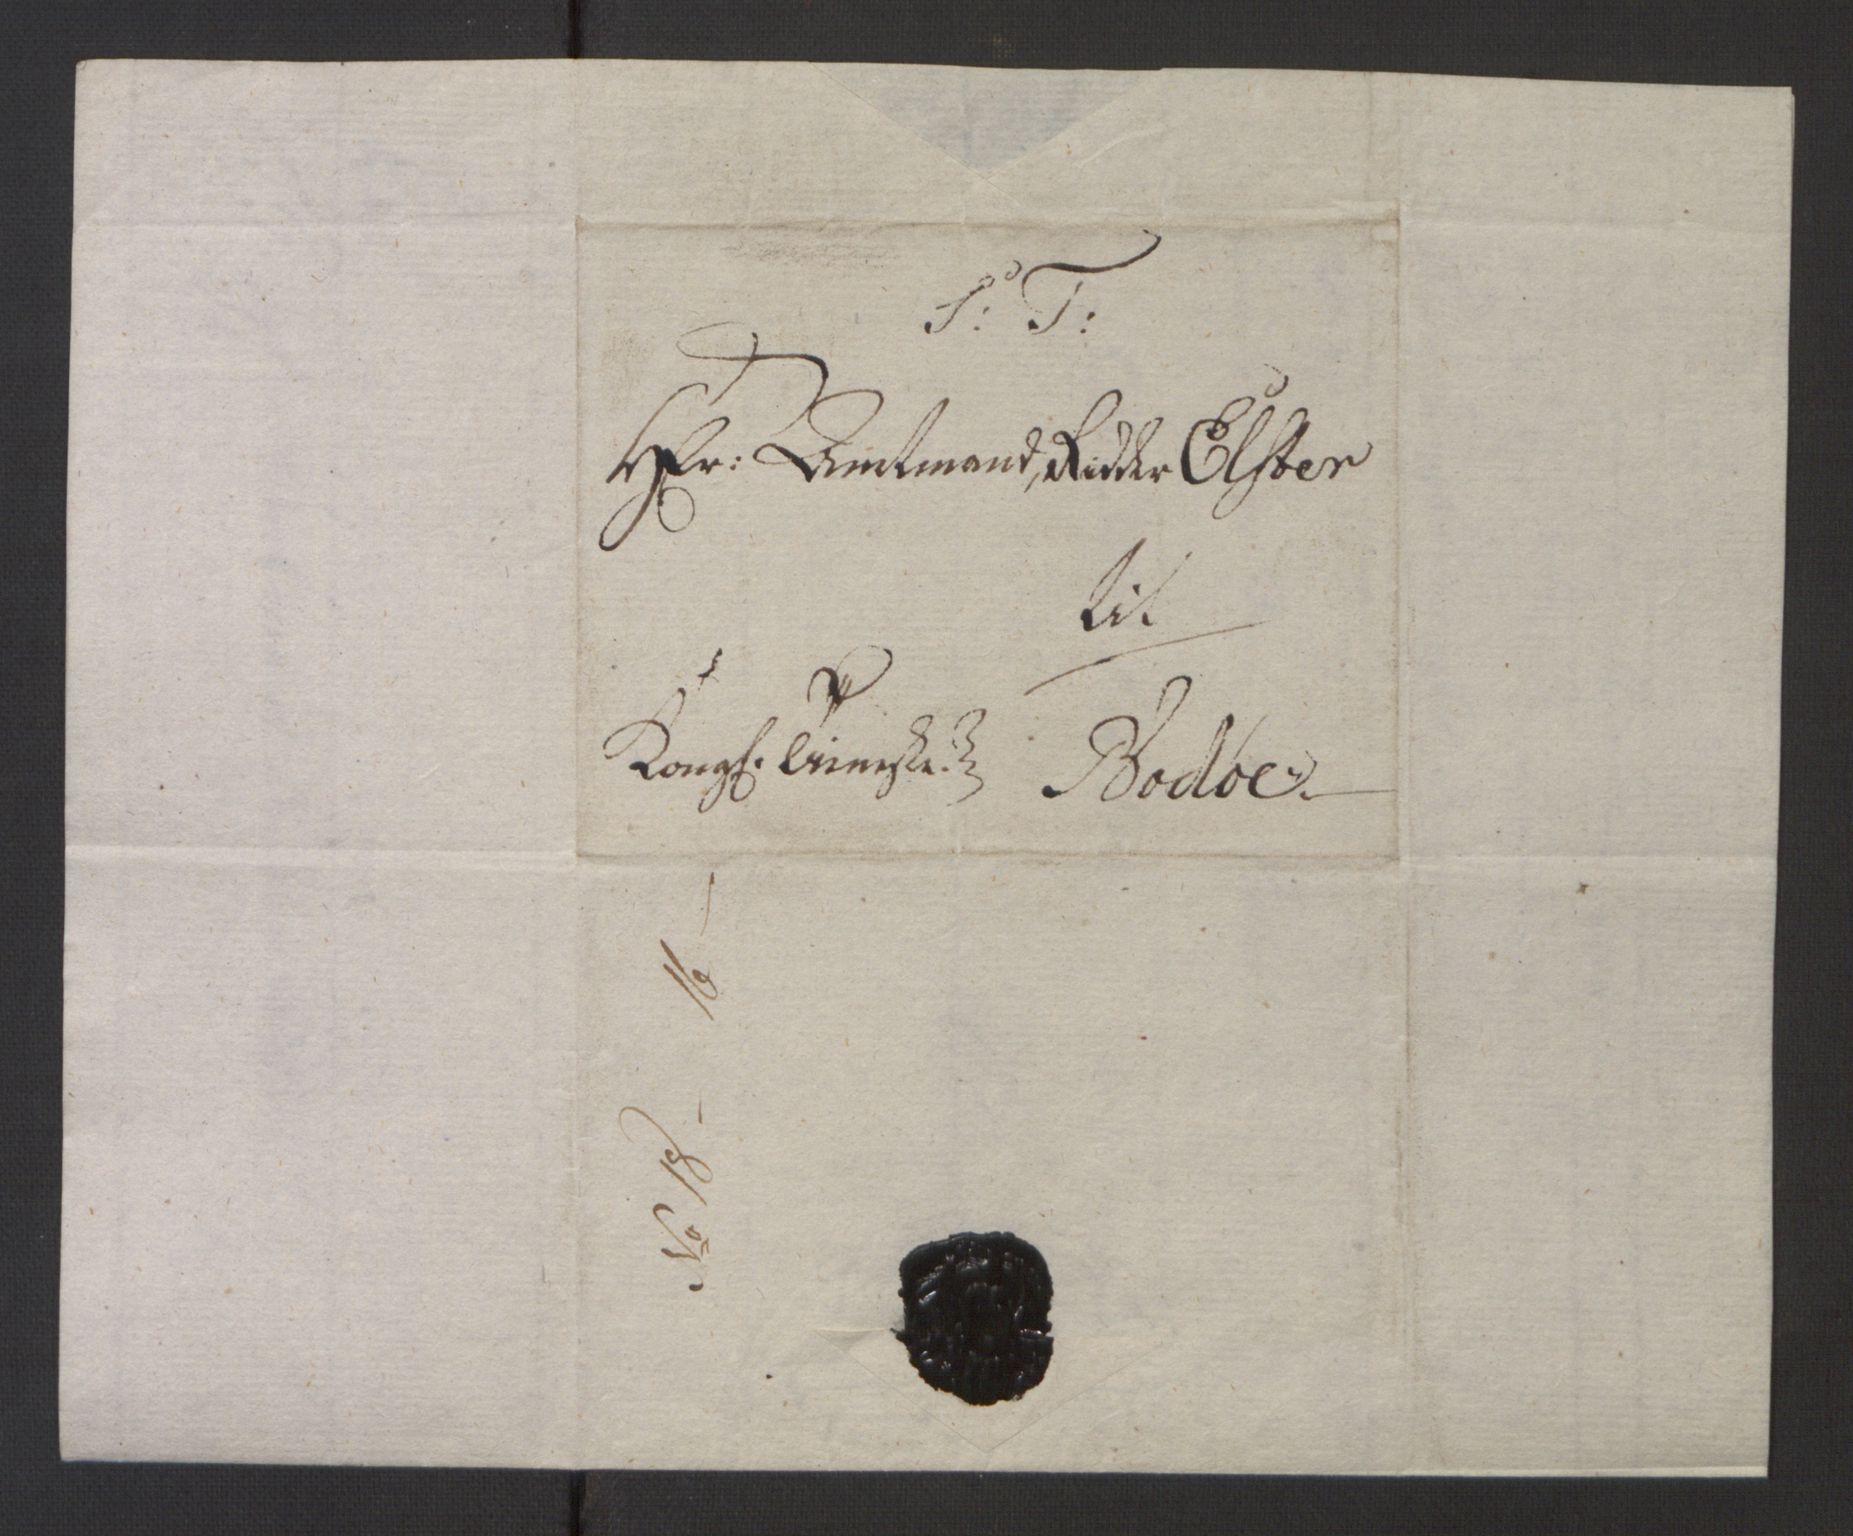 S: T:
Hr: Amtmand, Ridder Elster
til
Kongl. Tieneste. Bodøe.
16
No 18